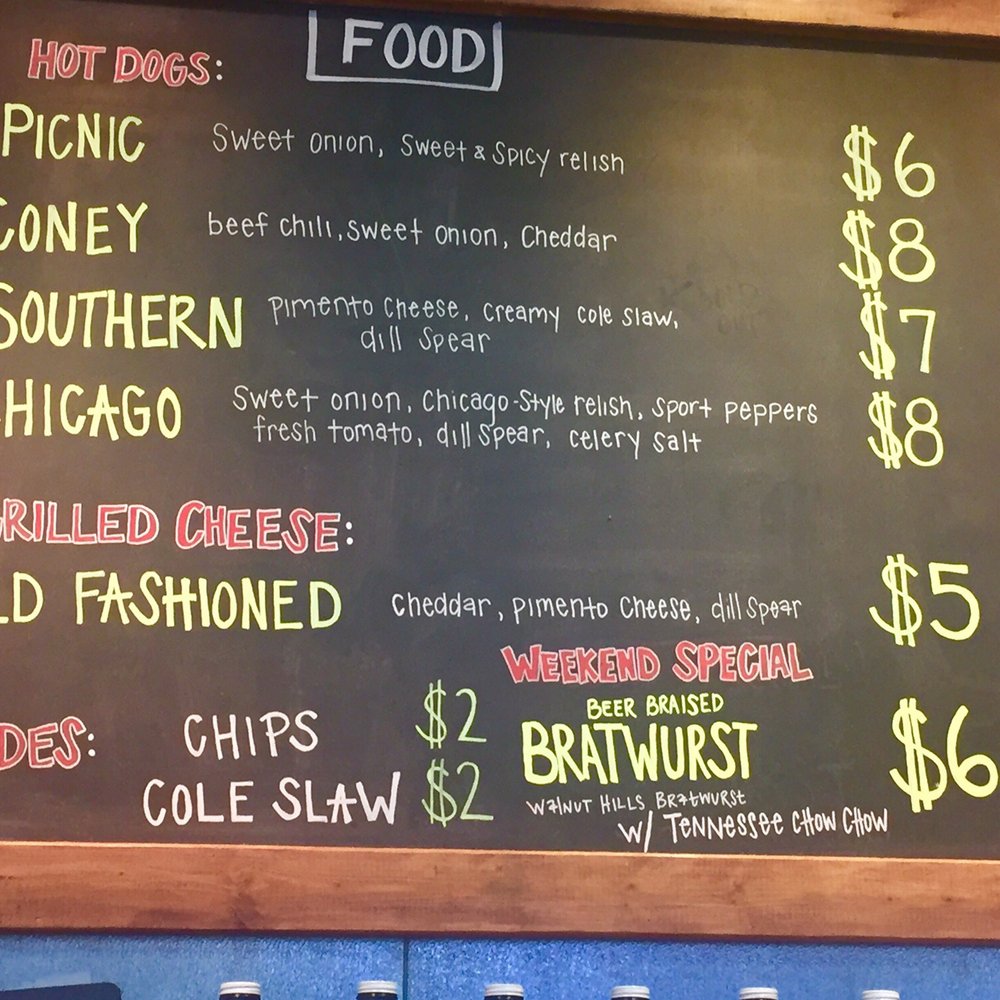 FOOD
HOT DOGS:
PICNIC Sweet onion, Sweet & Spicy relish $6
CONEY beef chili, sweet onion, Cheddar $8
SOUTHERN Pimento Cheese, creamy cole slaw, $7
dill Spear
CHICAGO Sweet onion, Chicago-Style relish, Sport Peppers $8
fresh tomato, dill Spear, celery salt
RILLED CHEESE:
LD FASHIONED Cheddar, Pimento Cheese, dill Spear $5
WEEKEND SPECIAL
DES: CHIPS $2
COLE SLAW $2
BEER BRAISED
BRATWURST $6
WALNUT HILLS BRATWURST
W/ TENNESSEE CHOW CHOW